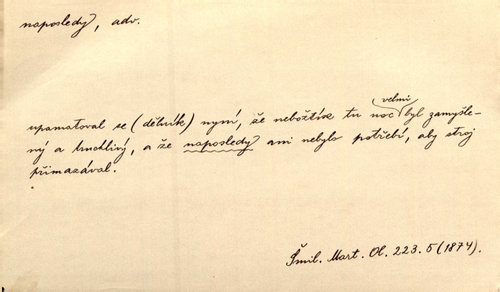 naposledy, adv.
upamatoval se (dělník) nyní, že nebožtík tu noc velmi byl zamyšle-
ný a truchlivý, a že naposledy ani nebylo potřebí, aby stroj
přimazával.
Šmil. Mart. Ol. 223. 5 (1874).